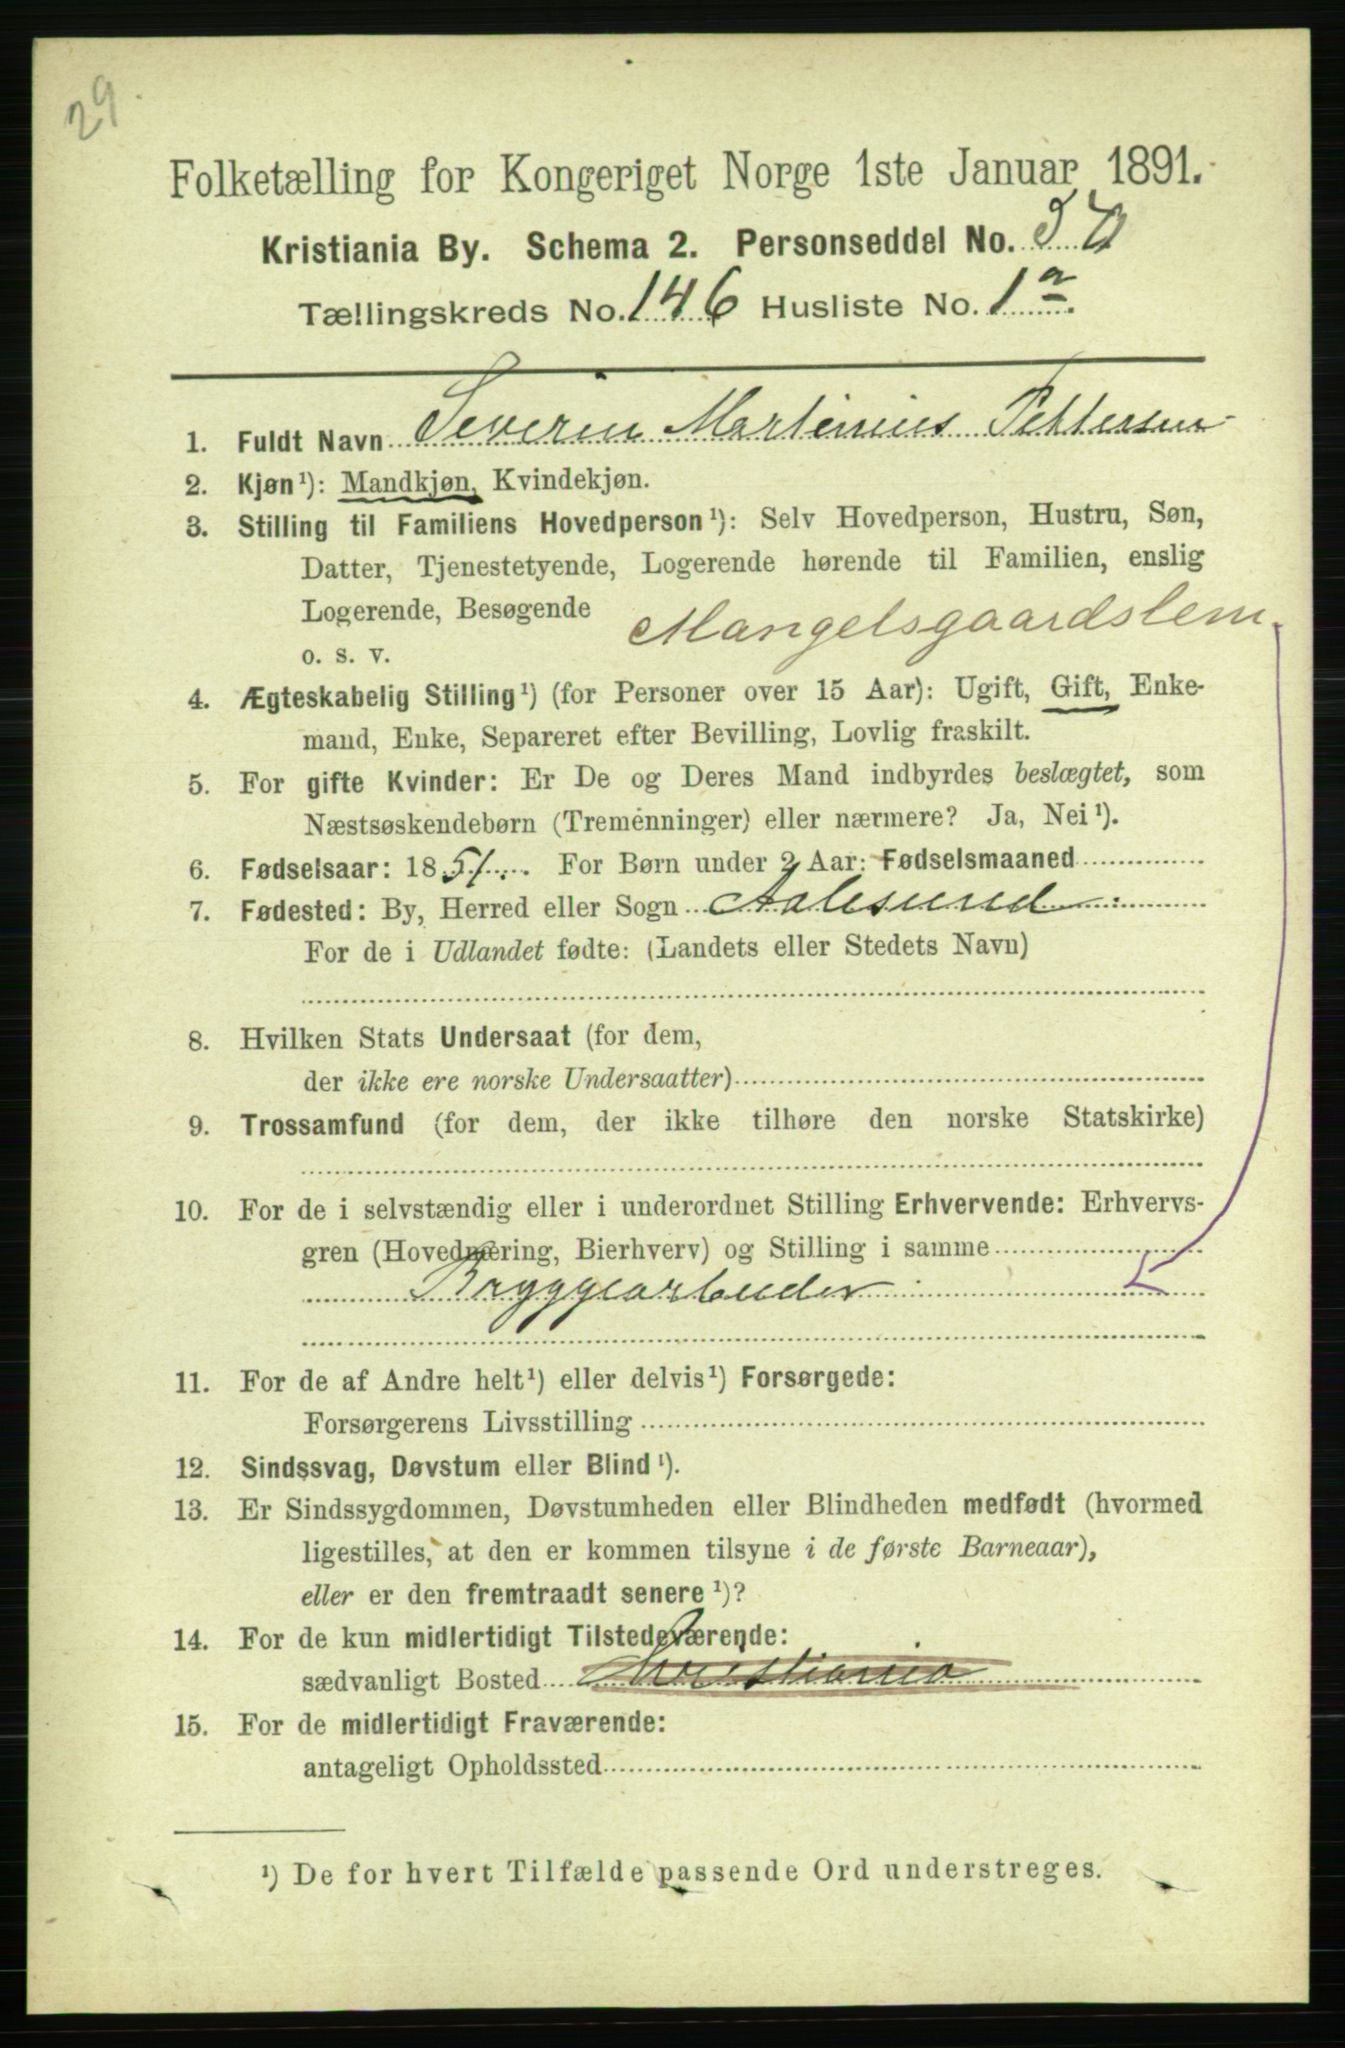 29
Folketælling for Kongeriget Norge 1ste Januar 1891.
Kristiania By. Schema 2. Personseddel No.
Tællingskreds No. 146 Husliste No. 1a.
1. Fuldt Navn Severin Martinius Pettersen
2. Kjøn¹): Mandkjøn, Kvindekjøn.
3. Stilling til Familiens Hovedperson¹): Selv Hovedperson, Hustru, Søn,
Datter, Tjenestetyende, Logerende hørende til Familien, enslig
Logerende, Besøgende
o. s. v.
Mangelsgaardslem.
4. Ægteskabelig Stilling¹) (for Personer over 15 Aar): Ugift, Gift, Enke-
mand, Enke, Separeret efter Bevilling, Lovlig fraskilt.
5. For gifte Kvinder: Er De og Deres Mand indbyrdes beslægtet, som
Næstsøskendebørn (Tremenninger) eller nærmere? Ja, Nei¹).
6. Fødselsaar: 1851. For Børn under 2 Aar: Fødselsmaaned
7. Fødested: By, Herred eller Sogn Aalesund
For de i Udlandet fødte: (Landets eller Stedets Navn)
8. Hvilken Stats Undersaat (for dem,
der ikke ere norske Undersaatter)
9. Trossamfund (for dem, der ikke tilhøre den norske Statskirke)
10. For de i selvstændig eller i underordnet Stilling Erhvervende: Erhvervs-
gren (Hovednæring, Bierhverv) og Stilling i samme
Bryggearbeider
11. For de af Andre helt¹) eller delvis¹) Forsørgede:
Forsørgerens Livsstilling
12. Sindssvag, Døvstum eller Blind¹).
13. Er Sindssygdommen, Døvstumheden eller Blindheden medfødt (hvormed
ligestilles, at den er kommen tilsyne i de første Barneaar),
eller er den fremtraadt senere¹)?
14. For de kun midlertidigt Tilstedeværende:
sædvanligt Bosted Christiania
15. For de midlertidigt Fraværende:
antageligt Opholdssted
¹) De for hvert Tilfælde passende Ord understreges.